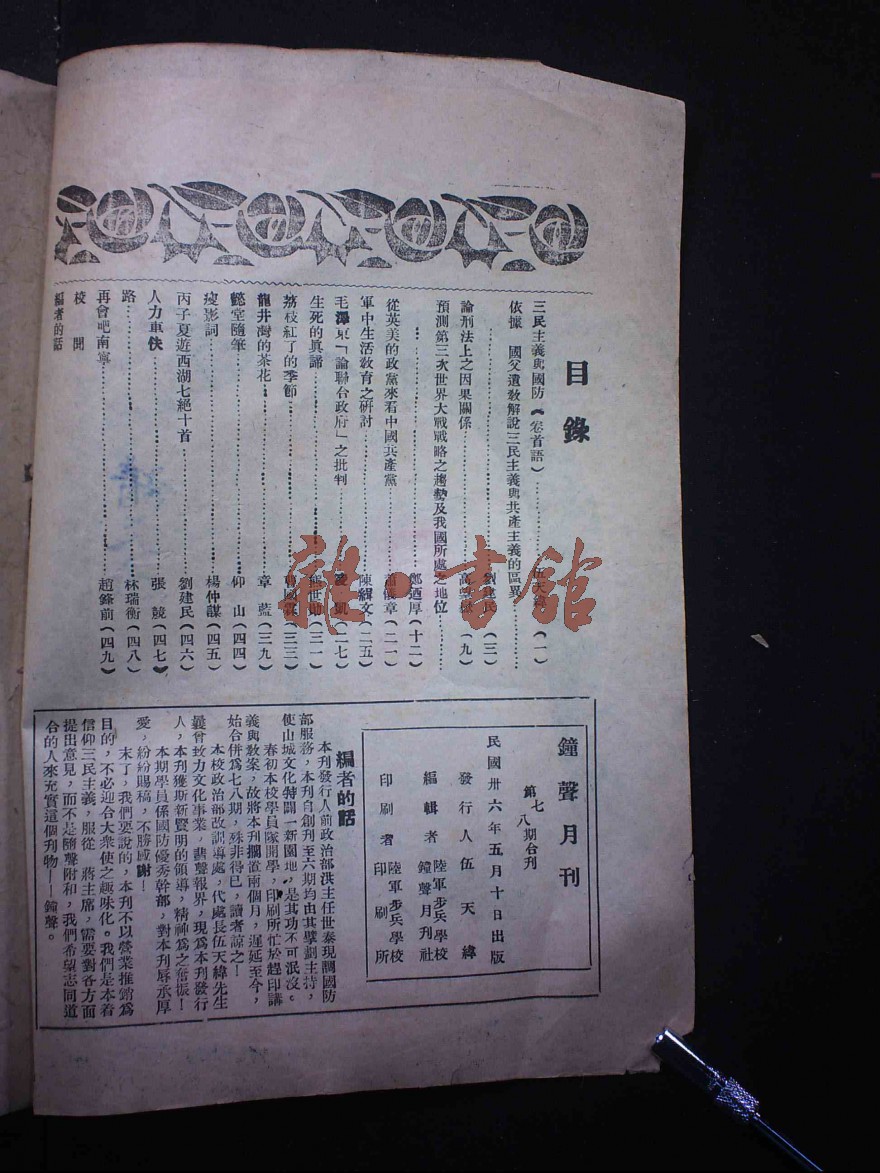 目錄
三民主義與國防(卷首語)……伍天緯(一)
依據 國父遺教解說三民主義與共產主義的區異
……劉建民(三)
論刑法上之因果關係……(九)
預測第三次世界大戰戰略之趨勢及我國所處之地位……
……鄭迺厚(十二)
從英美的政黨來看中國共產黨……蕭儀章(二一)
軍中生活教育之研討……陳緝文(二五)
毛澤東「論聯合政府」之批判……凱(二七)
生死的眞諦……熊世勛(三一)
荔枝紅了的季節……國霖(三三)
龍井灣的茶花……章 藍(三九)
懿堂隨筆……仰 山(四四)
瘦影詞……楊仲謀(四五)
丙子夏遊西湖七絕十首……劉建民(四六)
人力車伕……張 競(四七)
路……林瑞衡(四八)
再會吧南寧……趙鋒前(四九)
校 聞
編者的話
鐘聲月刊
第七八期合刊
民國卅六年五月十日出版
發行人 伍天緯
編輯者 陸軍步兵學校鐘聲月刊社
印刷者 陸軍步兵學校印刷所
編者的話
本刊發行人前政治部洪主任世泰現調國防
部服務,本刊自創刊至六期均由其擘劃主持,
使山城文化特闢一新園地,是其功不可泯沒。
春初本校學員隊開學,印刷所忙於趕印講
義與教案,故將本刊擱置兩個月,遲延至今,
始合併爲七八期,殊非得已,讀者諒之!
本校政治部改訓導處,代處長伍天緯先生
曩曾致力文化事業,蜚聲報界,現爲本刊發行
人,本刊獲斯新賢明的領導,精神爲之奮振!
本期學員係國防優秀幹部,對本刊辱承厚
愛,紛紛賜稿,不勝感謝!
末了,我們要說的,本刊不以營業推銷爲
目的,不必迎合大衆使之趣味化。我們是本着
信仰三民主義,服從 蔣主席,需要對各方面
提出意見,而不是隨聲附和,我們希望志同道
合的人來充實這個刊物——鐘聲。
雜·書館